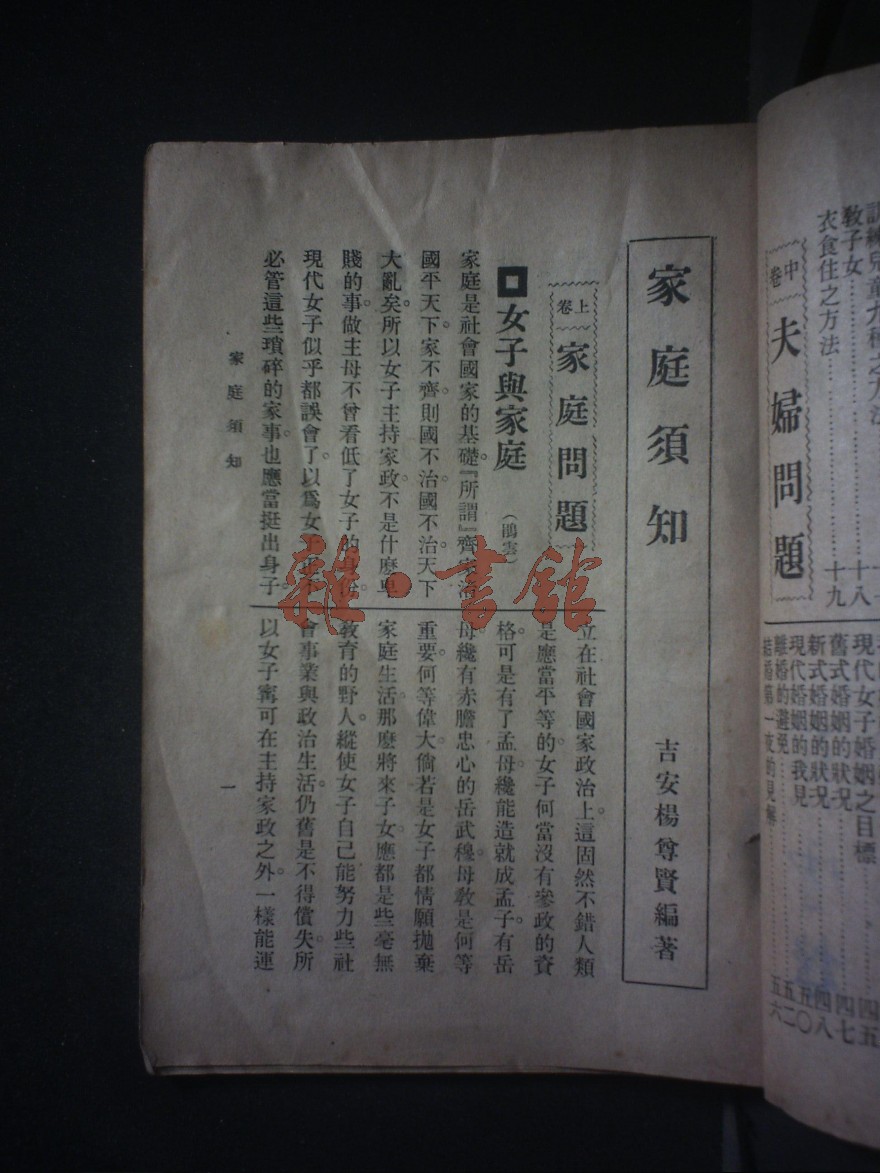 訓練兒童九種之方法
教子女
衣食住之方法 十八
十九
中卷 夫婦問題
現代女子婚姻之目標 四五
舊式婚姻的狀况 四七
新式婚姻的狀况 四八
現代婚姻的我見 五〇
離婚的避免 五二
結婚第一夜的見解 五六
家庭須知
吉安楊尊賢編著
上卷 家庭問題
女子與家庭 (鵑雲)
家庭是社會國家的基礎。『所謂』齊家治
國平天下。家不齊則國不治。國不治天下
大亂矣。所以女子主持家政。不是什麽卑
賤的事。做主母不曾看低了女子的身份
現代女子似乎都誤會了。以爲女子也不
必管這些瑣碎的家事。也應當挺出身子。
立在社會國家政治上。這固然不錯。人類
是應當平等的。女子何當沒有參政的資
格。可是有了孟母。纔能造就成孟子。有岳
母。纔有赤膽忠心的岳武穆。母教是何等
重要。何等偉大。倘若是女子都情願拋棄
家庭生活。那麽將來子女。應都是些毫無
教育的野人。縱使女子自己能努力些社
會事業與政治生活。仍舊是不得償失。所
以女子甯可在主持家政之外。一樣能運
家庭須知
一
雜·書館